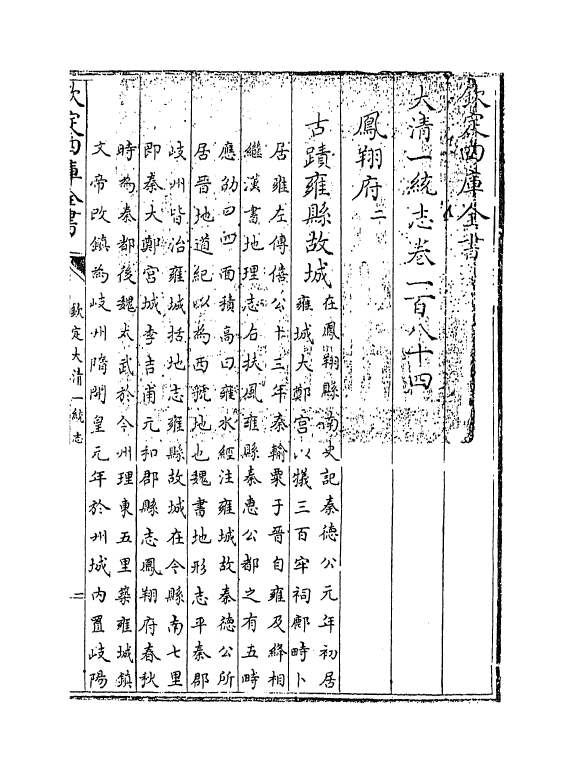 欽定四庫全書
大清一統志卷一百八十四
鳳翔府二
古蹟雍縣故城在鳳翔縣南史記秦德公元年初居
雍城大鄭宮以犧三百牢祠鄜畤卜
居雍左傳僖公十三年秦輸粟于晉自雍及絳相
繼漢書地理志右扶風雍縣秦惠公都之有五畤
應劭曰四面積高曰雍水經注雍城故秦德公所
居晉地道紀以為西虢地也魏書地形志平秦郡
岐州皆治雍城括地志雍縣故城在今縣南七里
即秦大鄭宮城李吉甫元和郡縣志鳳翔府春秋
時為秦都後魏太武於今州理東五里築雍城鎮
文帝改鎮為岐州隋開皇元年於州城內置岐陽
欽定四庫全書
欽定大清一統志